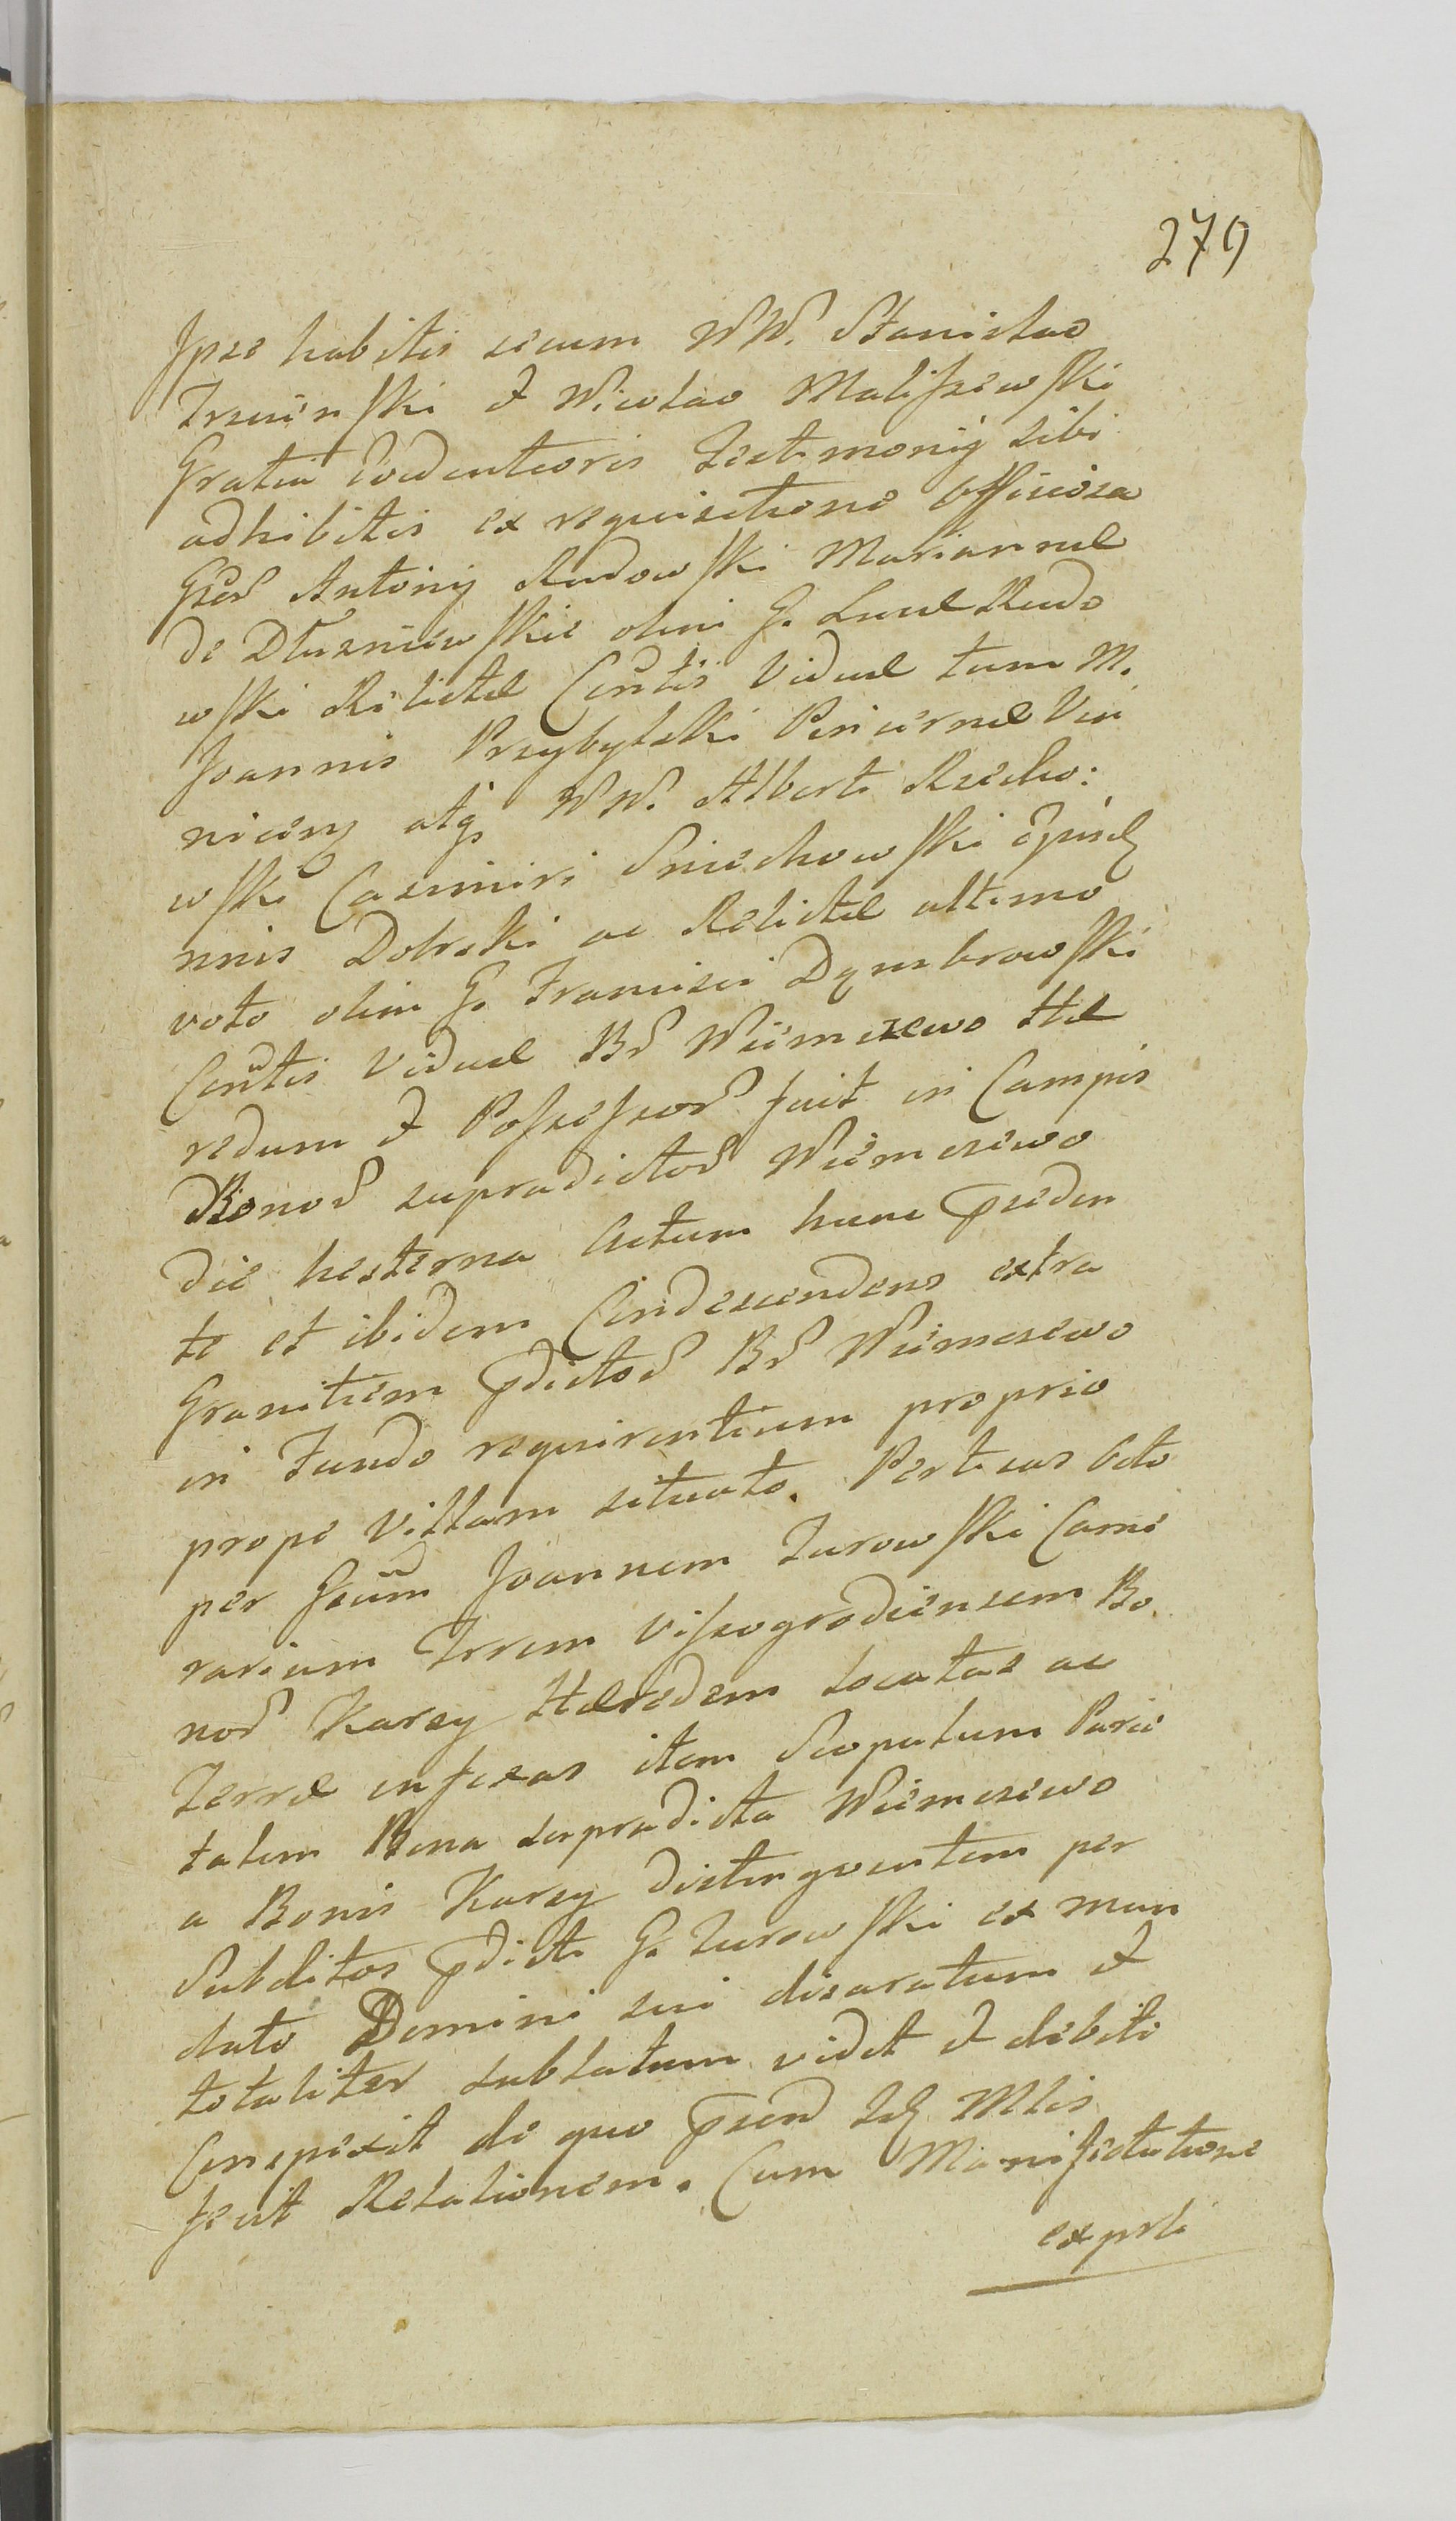 279
Ipse habitis secum WW. Stanislao
Trzcinski et Nicolao Maliszewski
Gratia Evidentioris Testimonij sibi
adhibitis ex requisitione Officiosa
Antonij Rudowski Mariannæ
de Dłuzniewskie olim G. Lucæ Rudo
wski Relictæ Contis Viduæ tum M.
Joannis Przybylski Pincernæ
atq WW. Alberti
wski Casimiri Sniechowski
nnis Dobski ac Relictæ ultimo
voto olim G. Francisci Dąmbrowski
Contis Viduæ Wiemczewo Hæ
redum et Possessor fuit in Campis
Bonor supradictor Wiemczewo
die hesterna Actum hunc præden
te et ibidem Condescendens extra
Granitiem pdictor Wiemczewo
in Fundo requirentium proprio
prope Villam situato. Perticas Octo
per Joannem Turowski Came
rarium Trrem Viszogrodiensem Bo
nor Karsy Hæredem locatas ac
Terræ infixas item Scopulum Parie
talem Bona supradicta Wiemczewo
a Bonis Karsy distingventem per
Subditos pdicti G. Turowski ex man
dato Domini sui disaratum et
totaliter sublatum vidit et debite
Conspexit de quo Mlis
fecit Relationem. Cum Manifestatione
ex prti